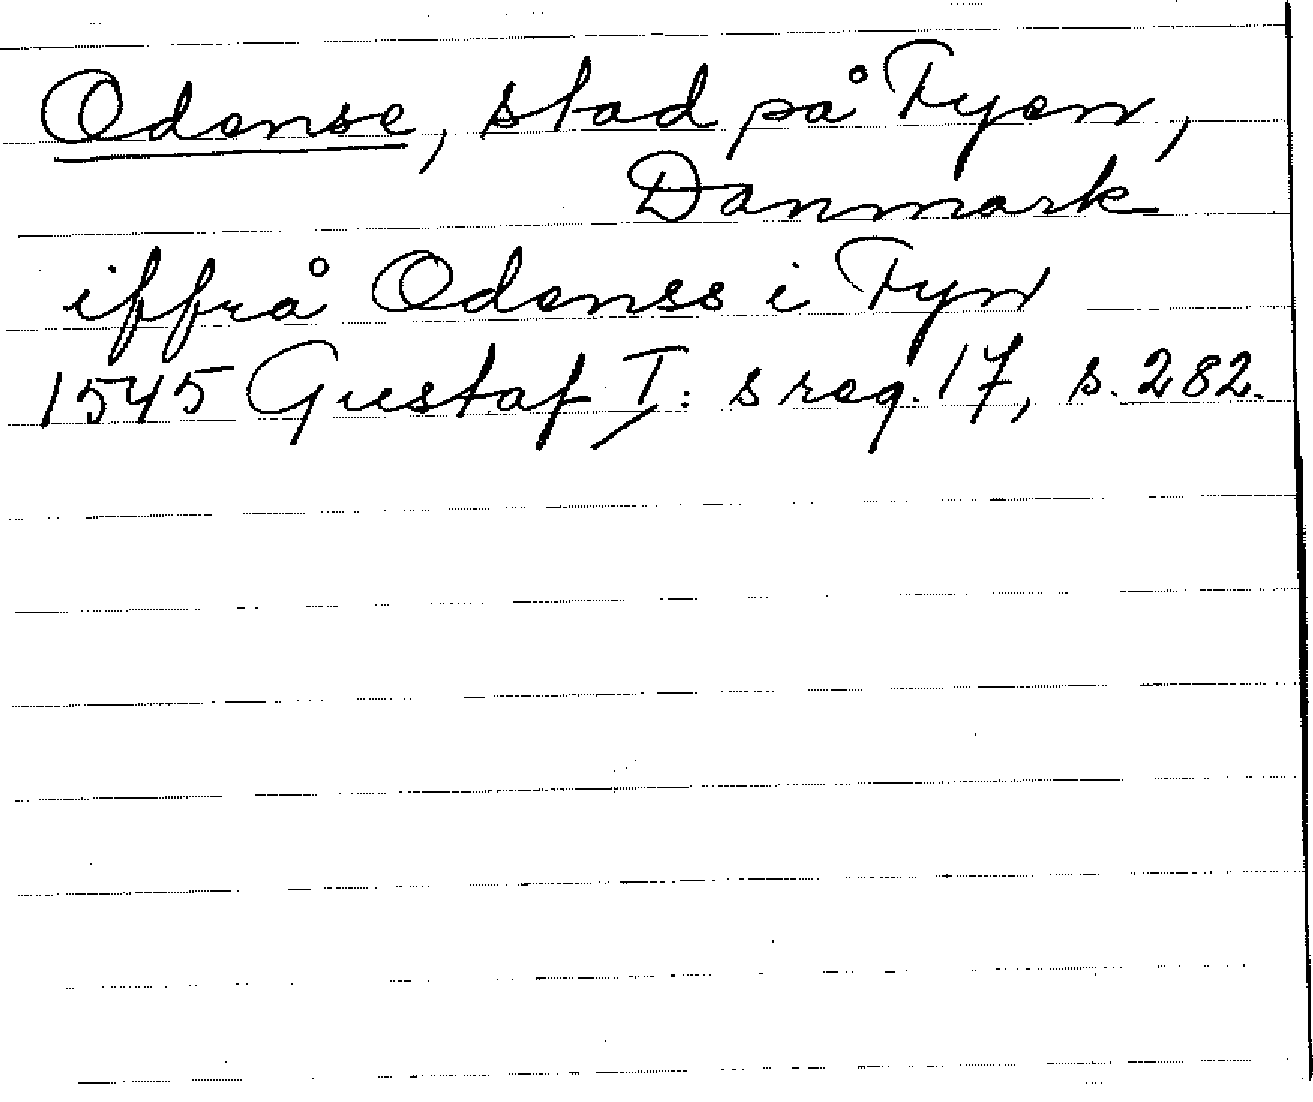 Odense, stad på Fyen,
Danmark
iffrå Odenss i Fyn
1545 Gustaf I: s reg. 17, s. 282.